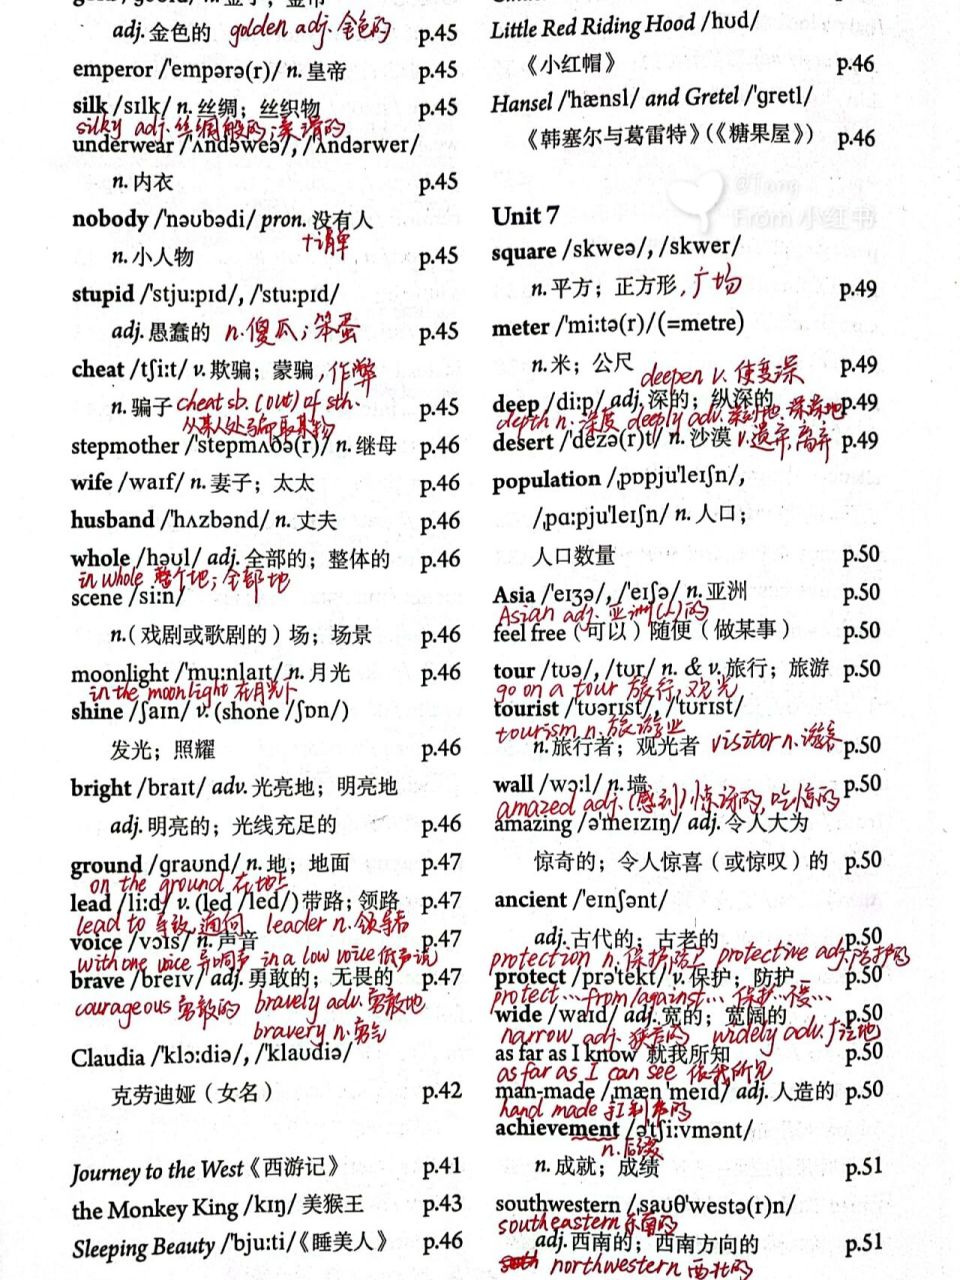 adj. 金色的 golden adj. 金色的 p.45
emperor /'empərə(r)/ n. 皇帝 p.45
silk /sɪlk/ n. 丝绸；丝织物 p.45
silky adj. 丝绸般的；柔滑的
underwear /'ʌndəweə/, /'ʌndərwer/
n. 内衣 p.45
nobody /'nəʊbədi/ pron. 没有人
+谓单
n. 小人物 p.45
stupid /'stju:pɪd/, /'stu:pɪd/
adj. 愚蠢的 n. 傻瓜；笨蛋 p.45
cheat /tʃi:t/ v. 欺骗；蒙骗，作弊
n. 骗子 cheat sb. (out) of sth. p.45
从某人处骗取某物
stepmother /'stepmʌðə(r)/ n. 继母 p.46
wife /waɪf/ n. 妻子；太太 p.46
husband /'hʌzbənd/ n. 丈夫 p.46
whole /həʊl/ adj. 全部的；整体的 p.46
in whole 整个地；全部地
scene /si:n/
n.（戏剧或歌剧的）场；场景 p.46
moonlight /'mu:nlaɪt/ n. 月光 p.46
in the moonlight 在月光下
shine /ʃaɪn/ v. (shone /ʃɒn/)
发光；照耀 p.46
bright /braɪt/ adv. 光亮地；明亮地
adj. 明亮的；光线充足的 p.46
ground /ɡraʊnd/ n. 地；地面 p.47
on the ground 在地上
lead /li:d/ v. (led /led/) 带路；领路 p.47
lead to 导致，通向 leader n. 领导者
voice /vɔɪs/ n. 声音 p.47
with one voice 异口同声 in a low voice 低声说
brave /breɪv/ adj. 勇敢的；无畏的 p.47
courageous 勇敢的 bravely adv. 勇敢地
bravery n. 勇气
Claudia /'klɔ:diə/, /'klaʊdiə/
克劳迪娅（女名） p.42
Journey to the West《西游记》 p.41
the Monkey King /kɪŋ/ 美猴王 p.43
Sleeping Beauty /'bju:ti/《睡美人》 p.46
Little Red Riding Hood /hʊd/
《小红帽》 p.46
Hansel /'hænsl/ and Gretel /'ɡretl/
《韩塞尔与葛雷特》（《糖果屋》） p.46
From 小红书
Unit 7
square /skweə/, /skwer/
n. 平方；正方形，广场 p.49
meter /'mi:tə(r)/ (=metre)
n. 米；公尺 p.49
deepen v. 使变深
deep /di:p/ adj. 深的；纵深的 p.49
depth n. 深度 deeply adv. 深深地
desert /'dezə(r)t/ n. 沙漠 v. 遗弃，离弃 p.49
population /ˌpɒpju'leɪʃn/,
/ˌpɑ:pju'leɪʃn/ n. 人口；
人口数量 p.50
Asia /'eɪʒə/, /'eɪʃə/ n. 亚洲 p.50
Asian adj. 亚洲(人)的
feel free（可以）随便（做某事） p.50
tour /tʊə/, /tʊr/ n. & v. 旅行；旅游 p.50
go on a tour 旅行，观光
tourist /'tʊərɪst/, /'tʊrɪst/
tourism n. 旅游业
n. 旅行者；观光者 visitor n. 游客 p.50
wall /wɔ:l/ n. 墙 p.50
amazed adj. (感到)惊讶的，吃惊的
amazing /ə'meɪzɪŋ/ adj. 令人大为
惊奇的；令人惊喜（或惊叹）的 p.50
ancient /'eɪnʃənt/
adj. 古代的；古老的 p.50
protection n. 保护，防卫 protective adj. 防护的
protect /prə'tekt/ v. 保护；防护 p.50
protect…from/against… 保护…不受…
wide /waɪd/ adj. 宽的；宽阔的 p.50
narrow adj. 狭窄的 widely adv. 广泛地
as far as I know 就我所知 p.50
as far as I can see 依我所见
man-made /ˌmæn 'meɪd/ adj. 人造的 p.50
hand made 手工制作的
achievement /ə'tʃi:vmənt/
n. 后缀
n. 成就；成绩 p.51
southwestern /ˌsaʊθ'westə(r)n/
southeastern 东南的
adj. 西南的；西南方向的 p.51
northwestern 西北的